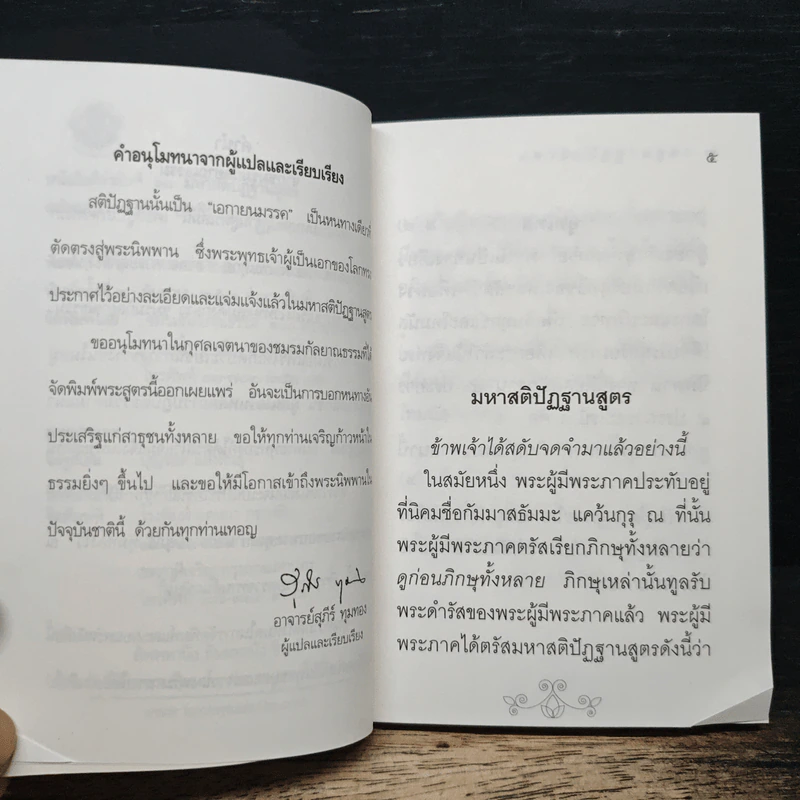 คำอนุโมทนาจากผู้แปลและเรียบเรียง
สติปัฏฐานนั้นเป็น "เอกายนมรรค" เป็นหนทางเดียวที่
ตัดตรงสู่พระนิพพาน ซึ่งพระพุทธเจ้าผู้เป็นเอกของโลกทรง
ประกาศไว้อย่างละเอียดและแจ่มแจ้งแล้วในมหาสติปัฏฐานสูตร
ขออนุโมทนาในกุศลเจตนาของชมรมกัลยาณธรรมที่ได้
จัดพิมพ์พระสูตรนี้ออกเผยแพร่ อันจะเป็นการบอกหนทางอัน
ประเสริฐแก่สาธุชนทั้งหลาย ขอให้ทุกท่านเจริญก้าวหน้าใน
ธรรมยิ่งๆ ขึ้นไป และขอให้มีโอกาสเข้าถึงพระนิพพานใน
ปัจจุบันชาตินี้ ด้วยกันทุกท่านเทอญ
อาจารย์สุภีร์ ทุมทอง
ผู้แปลและเรียบเรียง
๕
มหาสติปัฏฐานสูตร
ข้าพเจ้าได้สดับจดจำมาแล้วอย่างนี้
ในสมัยหนึ่ง พระผู้มีพระภาคประทับอยู่
ที่นิคมชื่อกัมมาสธัมมะ แคว้นกุรุ ณ ที่นั้น
พระผู้มีพระภาคตรัสเรียกภิกษุทั้งหลายว่า
ดูก่อนภิกษุทั้งหลาย ภิกษุเหล่านั้นทูลรับ
พระดำรัสของพระผู้มีพระภาคแล้ว พระผู้มี
พระภาคได้ตรัสมหาสติปัฏฐานสูตรดังนี้ว่า